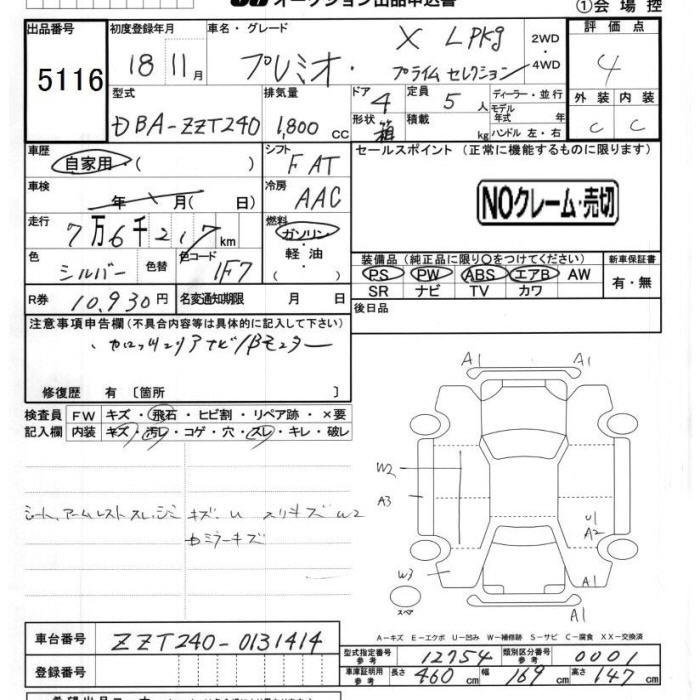 オークション出品申込書
①会場控
出品番号 5116
初度登録年月 18 11月
車名・グレード プレミオ・ X LPkg プライムセレクション
2WD・4WD
評価点 4
外装 C 内装 C
型式 DBA-ZZT240
排気量 1,800 CC
ドア 4 形状 箱
定員 5 人 積載 kg
ディーラー・並行
モデル年式 年
ハンドル 左・右
車歴 自家用・( )
シフト FAT
セールスポイント (正常に機能するものに限ります)
NOクレーム・売切
車検 年 月( 日)
冷房 AAC
走行 7万6千217km
燃料 ガソリン・軽油・( )
色 シルバー 色替 色コード 1F7
装備品 (純正品に限り○をつけてください)
PS PW ABS エアB AW
SR ナビ TV カワ
新車保証書 有・無
R券 10,930円 名変通知期限 月 日
後日品
注意事項申告欄 (不具合内容等は具体的に記入して下さい)
修復歴 有 〔箇所 〕
検査員記入欄
FW キズ・飛石・ヒビ割・リペア跡・×要
内装 キズ・汚レ・コゲ・穴・スレ・キレ・破レ
シート、アームレスト スレ、シミ キズ、U スリキズ W2
カミラーキズ
A1 A1
W2
A3
U1
A2
W3
A1
スペア
A1
A-キズ E-エクボ U-凹み W-補修跡 S-サビ C-腐食 XX-交換済
車台番号 ZZT240-0131414
登録番号
型式指定番号 参考 12754 類別区分番号 参考 0001
車庫証明用 参考 長さ 460 cm 幅 169 cm 高さ 147 cm